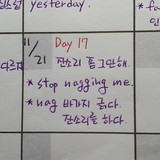 yesterday.
11/21
Day 17
잔소리 좀 그만해.
* stop nagging me.
* nag 바가지 긁다.
잔소리를 하다.